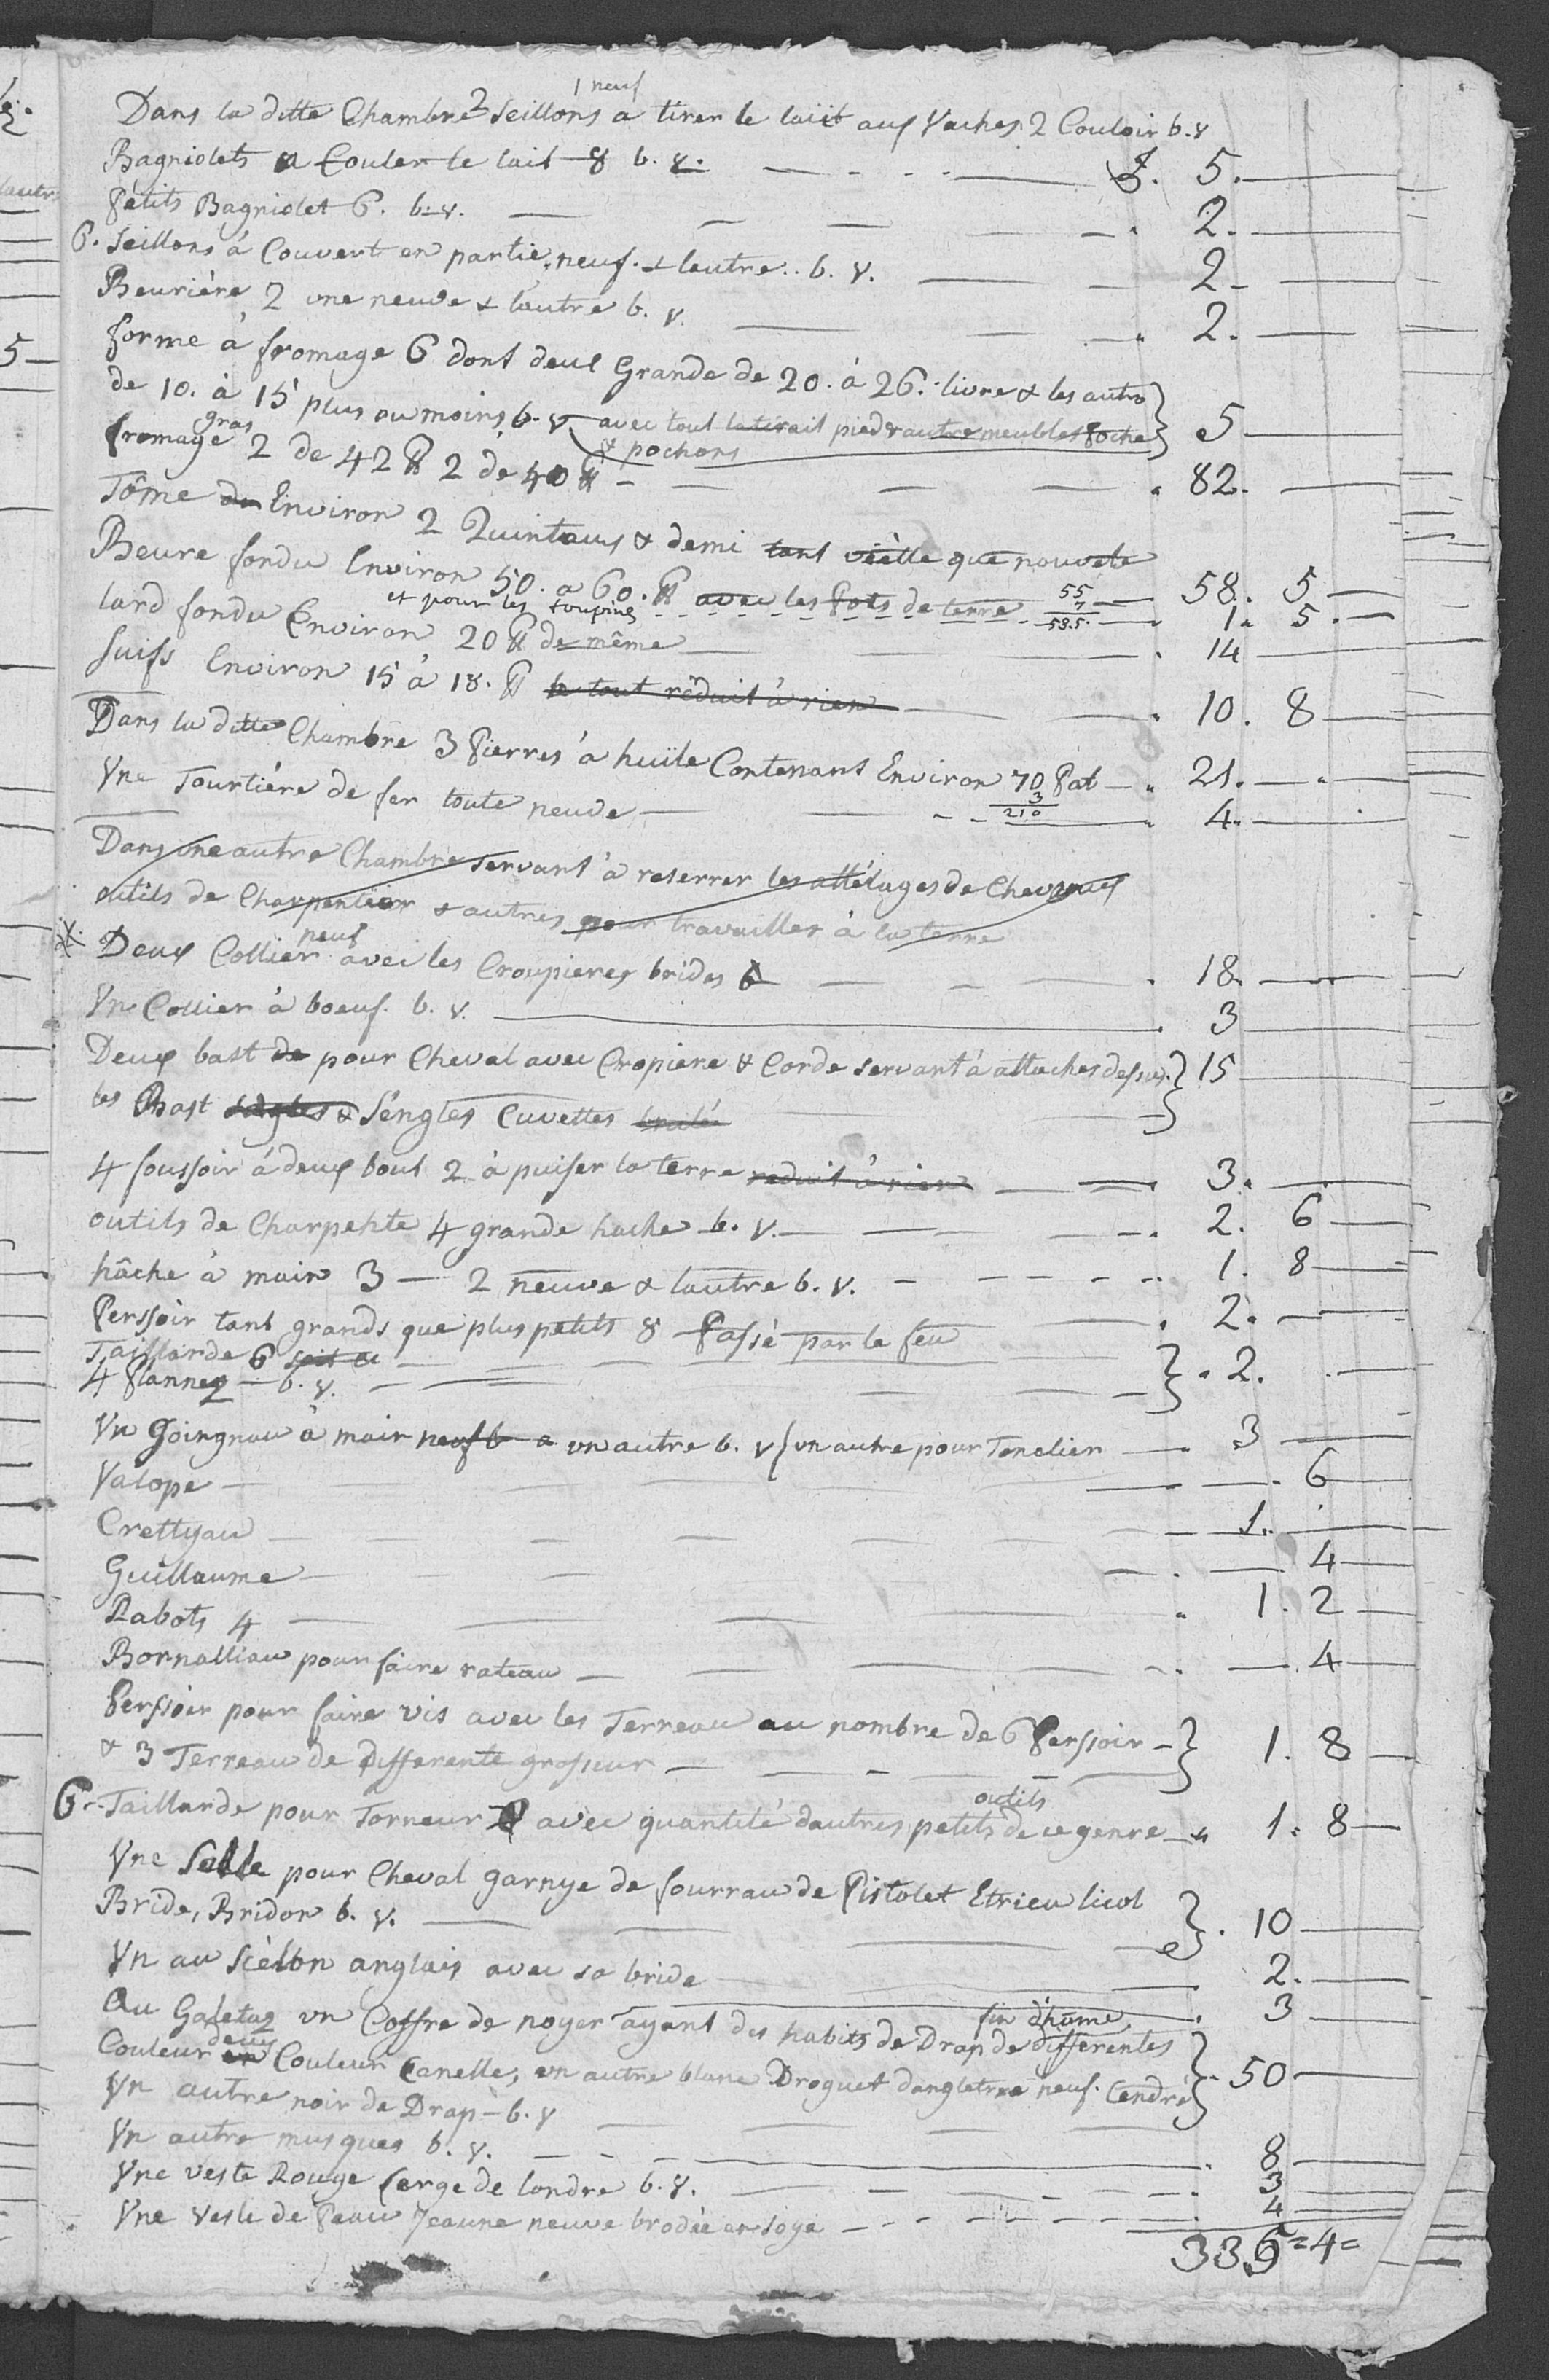 Dans la ditte Chambre 2 Seillons 1 neuf a tirer le laiit aux Vaches 2 Couloir b.v
Bagniolets a Couler le lait 8 b. v. 5.
petits Bagniolet 6. b.v. 2.
6. Seillons à Couvert en partie neuf. & lautre.. b. v. 2
Beurière 2 une neuve & lautre b. v. 2.
forme à fromage 6 dont deux Grande de 20. à 26. livre & les autre
de 10. à 15 plus ou moins b. v avec tout latirail pied & autre meubles poche & pochons 5
fromage gras 2 de 42 ℔ 2 de 40 ℔ 82.
Tôme de Environ 2 Quintaux & demi tant vièlle que nouvele
Beure fondu Environ 50. a 60. ℔ avec les Pots de terre 55 58. 5
et pour les toupins 58.5. 1. 5.
lard fondu Environ 20 ℔ de même 14
Suifs Environ 15 à 18. ℔ le tout réduit à rien 10. 8
Dans la ditte Chambre 3 Pierres à huile Contenant Environ 70 Pot 21.
3
210
Vne Tourtière de fer toute neuve 4.
Dans une autre Chambre servant à reserrer les attélages de Chevaux
outils de Charpentier & autres pour travailler à la terre
Deux Collier neuf avec les Croupieres brides 18.
Vn Collier à boeuf. b. v. 3
Deux bast de pour Cheval avec Cropiere & Corde servant à attacher dessus 15
les Bast & Sengles Cuvettes
4 foussoir à deux bout 2 à puiser la terre reduit à rien 3.
outils de Charpente 4 grande hache b. v. 2. 6
hâche à main 3 — 2 neuve & lautre b. v. 1. 8
Perssoir tant grands que plus petits 8 Passé par le feu 2.
Taillarde 6
4 Plannes b. v. 2.
Vn Goingnau à main neuf b a un autre b. v un autre pour Tonelier 3
Valope 6
Crettyau 1.
Guillaume 4
Rabots 4 1. 2
Bornalliau pour faire rateau 4
Perssoir pour faire vis avec les Terreau au nombre de 6 Perssoir
& 3 Terreau de differente grosseur 1. 8
6. Taillarde pour Torneur avec quantité dautres petits outils de ce genre 1. 8
Vne Selle pour Cheval garnye de fourrau de Pistolet Etrieu licol
Bride, Bridon b. v. 10
Vn au Scèlon anglais avec sa bride 2.
Au Galetas un Coffre de noyer ayant des habits de Drap fin d'hôme de differentes 3
Couleur deux Couleur Canelle, un autre blanc Droguet dangletrre neuf. Cendré 50
Vn autre noir de Drap b. v
Vn autre musques b. v. 8
Vne veste Rouge Serge de londre b. v. 3
Vne Veste de Peau Jeaune neuve brodée en soye 4
=4=